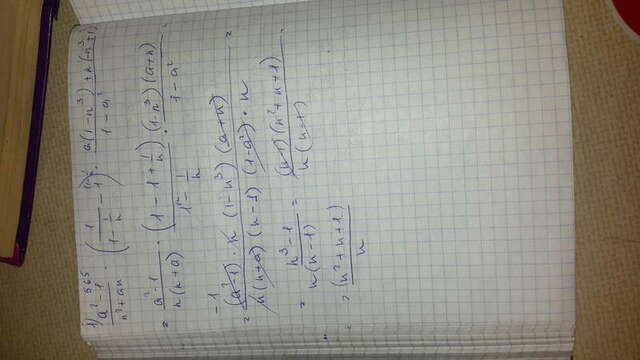 1) 565
(a²-1)/(n²+an) · (1/(1-1/n) - 1) · (a(1-n³)+n(-n³+1))/(1-a²)
= (a²-1)/(n(n+a)) · (1-1+1/n)/(1-1/n) · (1-n³)(a+n)/(1-a²) =
= -1 (a²-1) · n (1-n³)(a+n)/(n(n+a)(n-1)(1-a²) · n) =
= (n³-1)/(n(n-1)) = (n-1)(n²+n+1)/(n(n-1)) =
= (n²+n+1)/n